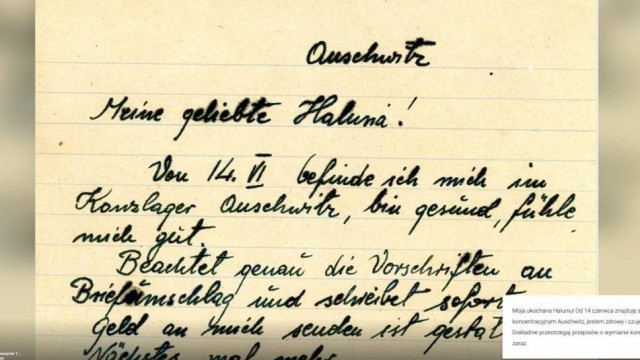 Auschwitz
Meine geliebte Halunia!
Von 14. VI befinde ich mich im
Konzlager Auschwitz, bin gesund, fühle
mich gut.
Beachtet genau die Vorschriften an
Briefumschlag und schreibet sofort
geld an mich senden ist gestat
Nächstes mal mehr
Moja ukochana Haluniu! Od 14 czerwca znajduję s
koncentracyjnym Auschwitz, jestem zdrowy i czuję
Dokładnie przestrzegaj przepisów o wymianie kore
zaraz.